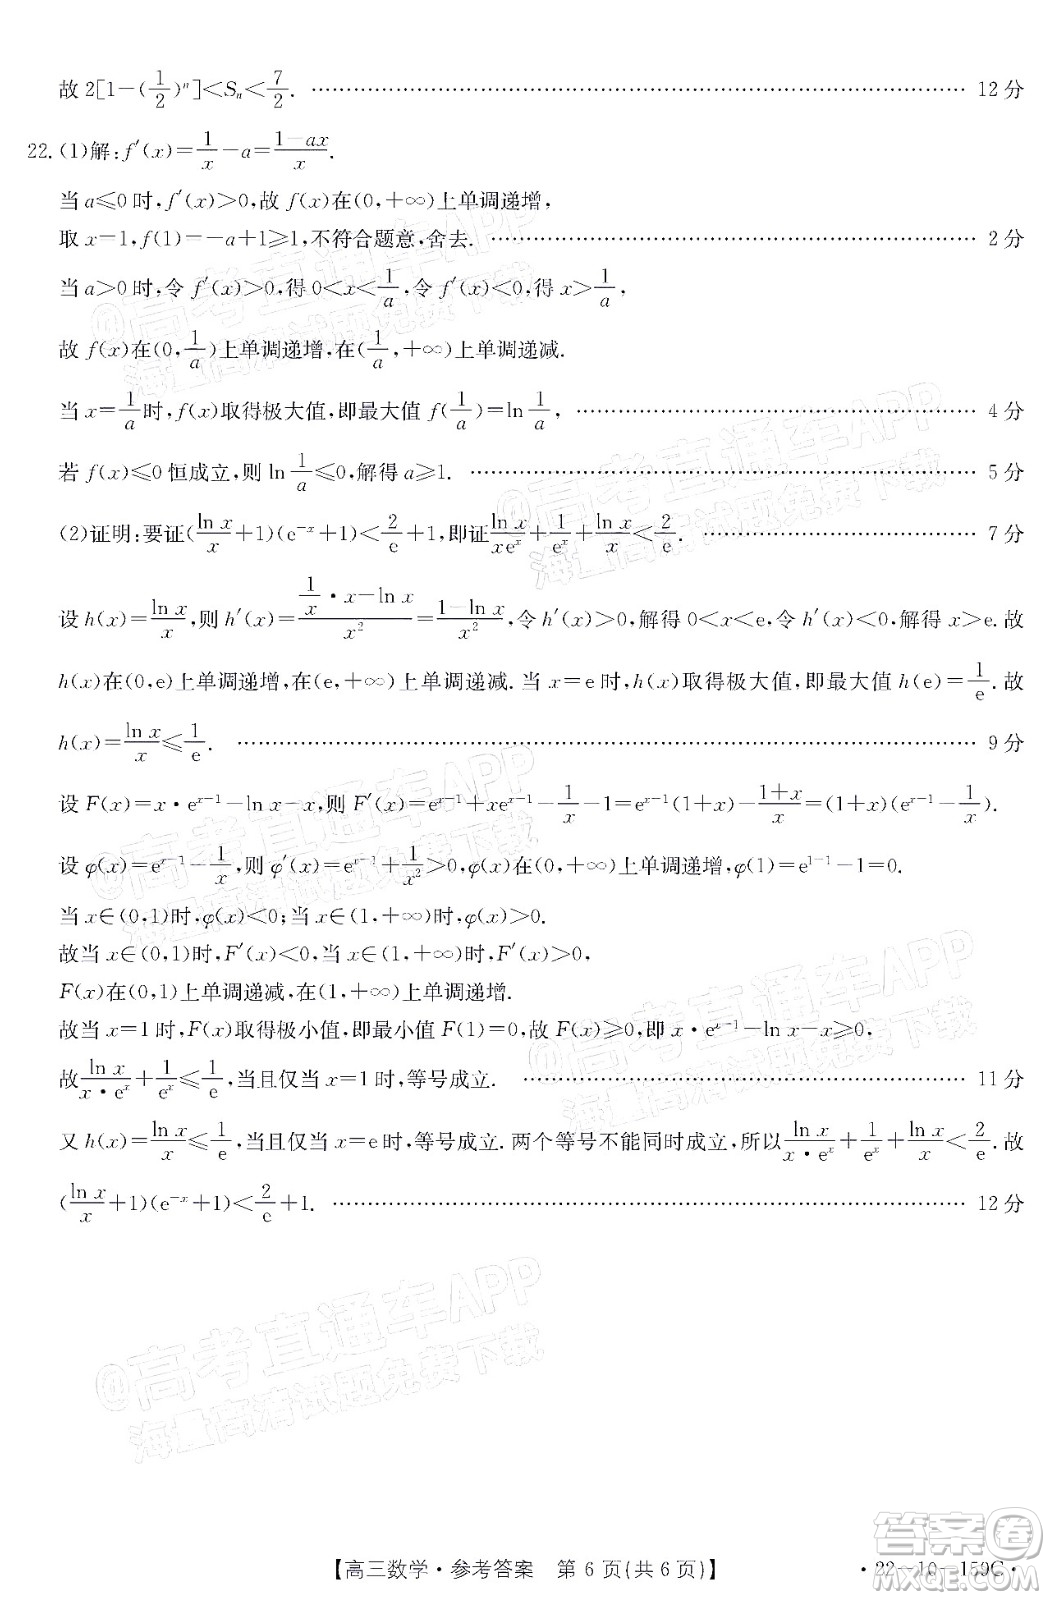 故 2[1-(1/2)ⁿ]<Sₙ<7/2. ………… 12 分
22.(1)解:f′(x)=1/x-a=(1-ax)/x.
当 a≤0 时,f′(x)>0,故 f(x)在(0,+∞)上单调递增,
取 x=1,f(1)=-a+1≥1,不符合题意,舍去. ………… 2 分
当 a>0 时,令 f′(x)>0,得 0<x<1/a,令 f′(x)<0,得 x>1/a,
故 f(x)在(0,1/a)上单调递增,在(1/a,+∞)上单调递减.
当 x=1/a 时,f(x)取得极大值,即最大值 f(1/a)=ln 1/a, ………… 4 分
若 f(x)≤0 恒成立,则 ln 1/a≤0,解得 a≥1. ………… 5 分
(2)证明:要证(ln x/x+1)(e⁻ˣ+1)<2/e+1,即证 ln x/(xeˣ)+1/eˣ+ln x/x<2/e. ………… 7 分
设 h(x)=ln x/x,则 h′(x)=(1/x·x-ln x)/x²=(1-ln x)/x²,令 h′(x)>0,解得 0<x<e,令 h′(x)<0,解得 x>e.故
h(x)在(0,e)上单调递增,在(e,+∞)上单调递减.当 x=e 时,h(x)取得极大值,即最大值 h(e)=1/e.故
h(x)=ln x/x≤1/e. ………… 9 分
设 F(x)=x·eˣ⁻¹-ln x-x,则 F′(x)=eˣ⁻¹+xeˣ⁻¹-1/x-1=eˣ⁻¹(1+x)-(1+x)/x=(1+x)(eˣ⁻¹-1/x).
设 φ(x)=eˣ⁻¹-1/x,则 φ′(x)=eˣ⁻¹+1/x²>0,φ(x)在(0,+∞)上单调递增,φ(1)=e¹⁻¹-1=0.
当 x∈(0,1)时,φ(x)<0;当 x∈(1,+∞)时,φ(x)>0.
故当 x∈(0,1)时,F′(x)<0,当 x∈(1,+∞)时,F′(x)>0,
F(x)在(0,1)上单调递减,在(1,+∞)上单调递增.
故当 x=1 时,F(x)取得极小值,即最小值 F(1)=0,故 F(x)≥0,即 x·eˣ⁻¹-ln x-x≥0,
故 ln x/(x·eˣ)+1/eˣ≤1/e,当且仅当 x=1 时,等号成立. ………… 11 分
又 h(x)=ln x/x≤1/e,当且仅当 x=e 时,等号成立.两个等号不能同时成立,所以 ln x/(x·eˣ)+1/eˣ+ln x/x<2/e.故
(ln x/x+1)(e⁻ˣ+1)<2/e+1. ………… 12 分
@高考直通车APP
海量高清试题免费下载
@高考直通车APP
海量高清试题免费下载
@高考直通车APP
海量高清试题免费下载
@高考直通车APP
海量高清试题免费下载
@高考直通车APP
海量高清试题免费下载
【高三数学·参考答案 第 6 页(共 6 页)】
·22-10-159C·
答案圈
MXQE.COM